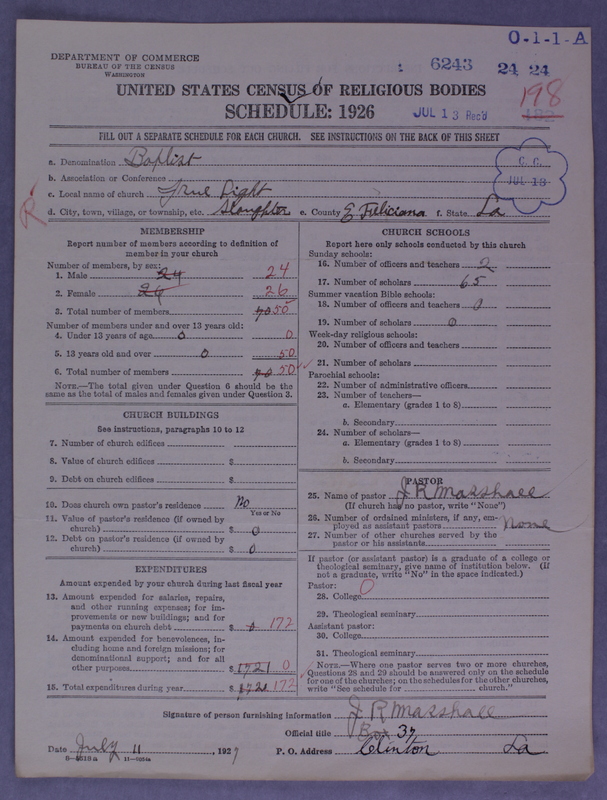 O-1-1-A
DEPARTMENT OF COMMERCE
BUREAU OF THE CENSUS
WASHINGTON
6243 24 24
198
UNITED STATES CENSUS OF RELIGIOUS BODIES
SCHEDULE: 1926
JUL 13 Rec'd
FILL OUT A SEPARATE SCHEDULE FOR EACH CHURCH. SEE INSTRUCTIONS ON THE BACK OF THIS SHEET
C. C.
JUL 13
a. Denomination Baptist
b. Association or Conference
c. Local name of church True Light
d. City, town, village, or township, etc. Slaughter e. County E Feliciana f. State La
R
MEMBERSHIP
Report number of members according to definition of
member in your church
Number of members, by sex:
1. Male 24 24
2. Female 26 26
3. Total number of members 50
Number of members under and over 13 years old:
4. Under 13 years of age 0 0
5. 13 years old and over 0 50
6. Total number of members 50
NOTE.—The total given under Question 6 should be the
same as the total of males and females given under Question 3.
CHURCH BUILDINGS
See instructions, paragraphs 10 to 12
7. Number of church edifices
8. Value of church edifices $
9. Debt on church edifices $
10. Does church own pastor's residence No
Yes or No
11. Value of pastor's residence (if owned by
church) $ 0
12. Debt on pastor's residence (if owned by
church) $ 0
EXPENDITURES
Amount expended by your church during last fiscal year
13. Amount expended for salaries, repairs,
and other running expenses; for im-
provements or new buildings; and for
payments on church debt $ 0 172
14. Amount expended for benevolences, in-
cluding home and foreign missions; for
denominational support; and for all
other purposes $ 0
15. Total expenditures during year $ 172
CHURCH SCHOOLS
Report here only schools conducted by this church
Sunday schools:
16. Number of officers and teachers 2
17. Number of scholars 65
Summer vacation Bible schools:
18. Number of officers and teachers 0
19. Number of scholars 0
Week-day religious schools:
20. Number of officers and teachers
21. Number of scholars
Parochial schools:
22. Number of administrative officers
23. Number of teachers—
a. Elementary (grades 1 to 8)
b. Secondary
24. Number of scholars—
a. Elementary (grades 1 to 8)
b. Secondary
PASTOR
25. Name of pastor J R Marshall
(If church has no pastor, write "None")
26. Number of ordained ministers, if any, em-
ployed as assistant pastors None
27. Number of other churches served by the
pastor or his assistants
If pastor (or assistant pastor) is a graduate of a college or
theological seminary, give name of institution below. (If
not a graduate, write "No" in the space indicated.)
Pastor:
28. College 0
29. Theological seminary
Assistant pastor:
30. College
31. Theological seminary
NOTE.—Where one pastor serves two or more churches,
Questions 28 and 29 should be answered only on the schedule
for one of the churches; on the schedules for the other churches,
write "See schedule for church."
Signature of person furnishing information J R Marshall
Official title Box 37
Date July 11, 1927 P. O. Address Clinton La